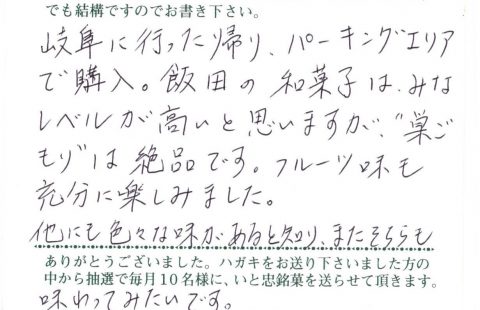 でも結構ですのでお書き下さい。
岐阜に行った帰り、パーキングエリア
で購入。飯田の和菓子は、みな
レベルが高いと思いますが、“巣ご
もり”は絶品です。フルーツ味も
充分に楽しみました。
他にも色々な味があると知り、またそちらも
ありがとうございました。ハガキをお送り下さいました方の
中から抽選で毎月10名様に、いと忠銘菓を送らせて頂きます。
味わってみたいです。